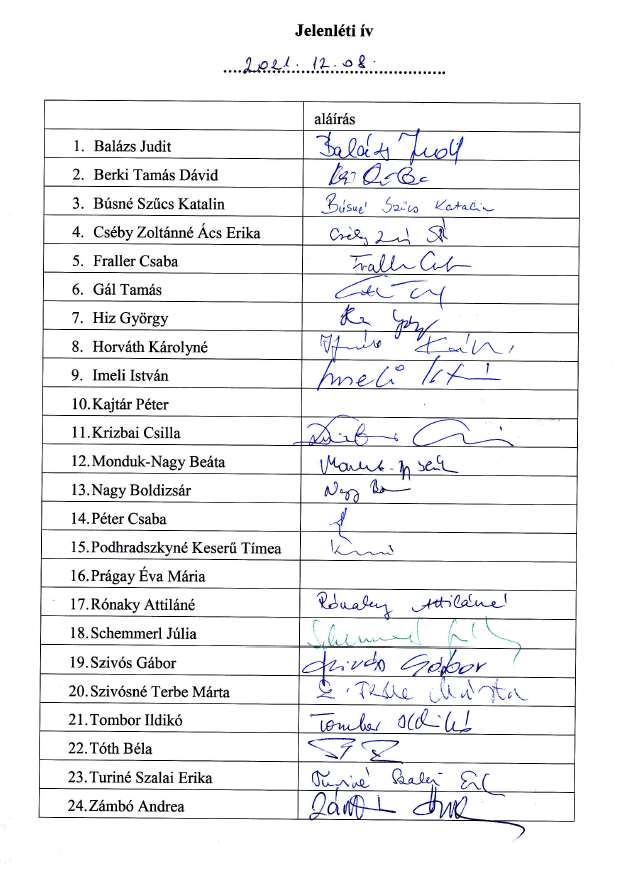 Jelenléti ív
2021. 12. 08.
aláírás
1. Balázs Judit Balázs Judit
2. Berki Tamás Dávid
3. Búsné Szűcs Katalin Búsné Szűcs Katalin
4. Cséby Zoltánné Ács Erika
5. Fraller Csaba Fraller
6. Gál Tamás
7. Hiz György
8. Horváth Károlyné
9. Imeli István Imeli
10. Kajtár Péter
11. Krizbai Csilla
12. Monduk-Nagy Beáta
13. Nagy Boldizsár Nagy
14. Péter Csaba
15. Podhradszkyné Keserű Tímea
16. Prágay Éva Mária
17. Rónaky Attiláné Rónaky Attiláné
18. Schemmerl Júlia
19. Szivós Gábor Szivós Gábor
20. Szivósné Terbe Márta Márta
21. Tombor Ildikó Tombor Ildikó
22. Tóth Béla
23. Turiné Szalai Erika Turiné Szalai
24. Zámbó Andrea